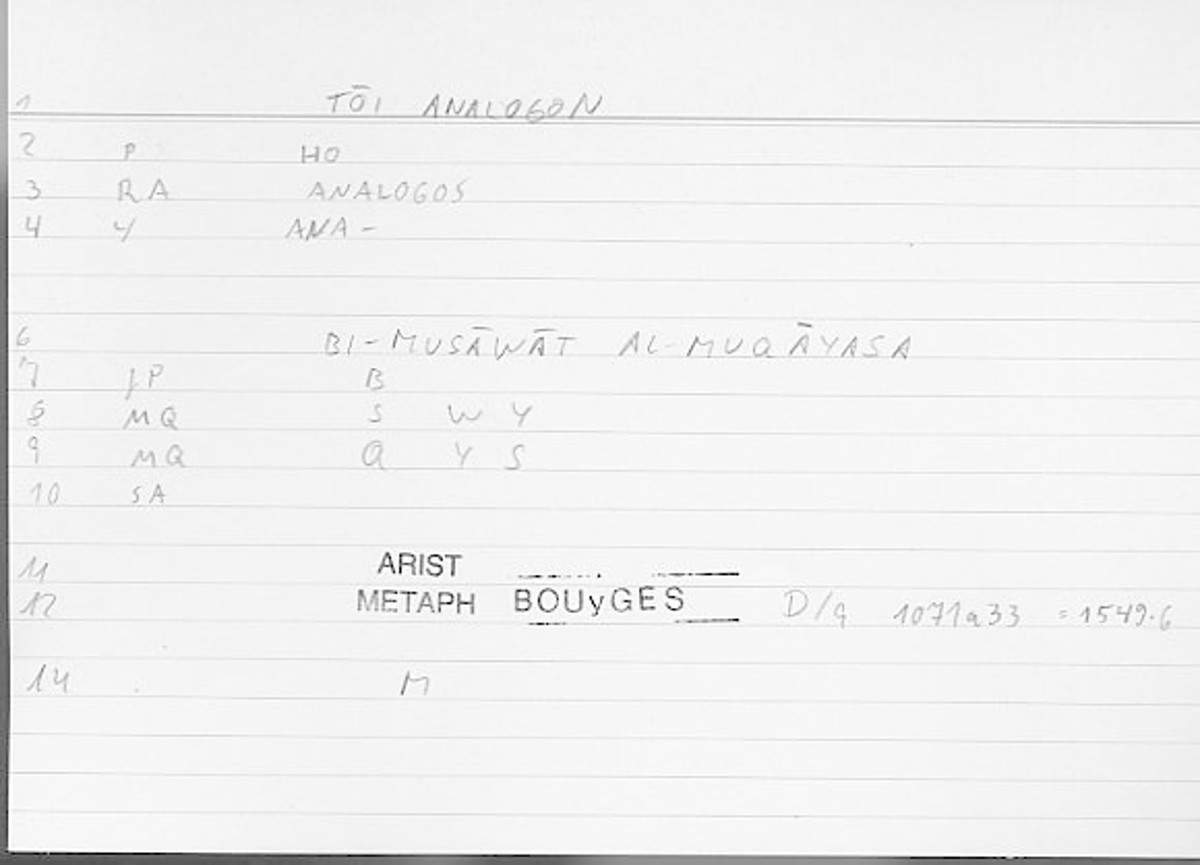 1 TŌI ANALOGON
2 P HO
3 RA ANALOGOS
4 Y ANA-
6 BI-MUSĀWĀT AL-MUQĀYASA
7 JP B
8 MQ S W Y
9 MQ Q Y S
10 SA
11 ARIST
12 METAPH BOUyGES D/g 1071a33 =1549.6
14 M